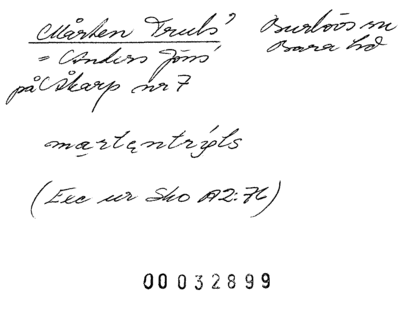 Mårten Truls' Burlövs sn
= Anders Jöns' Bara hd
på Åkarp nr 7
mạrtẹntrýls
(Exc ur Sko A2:76)
00032899